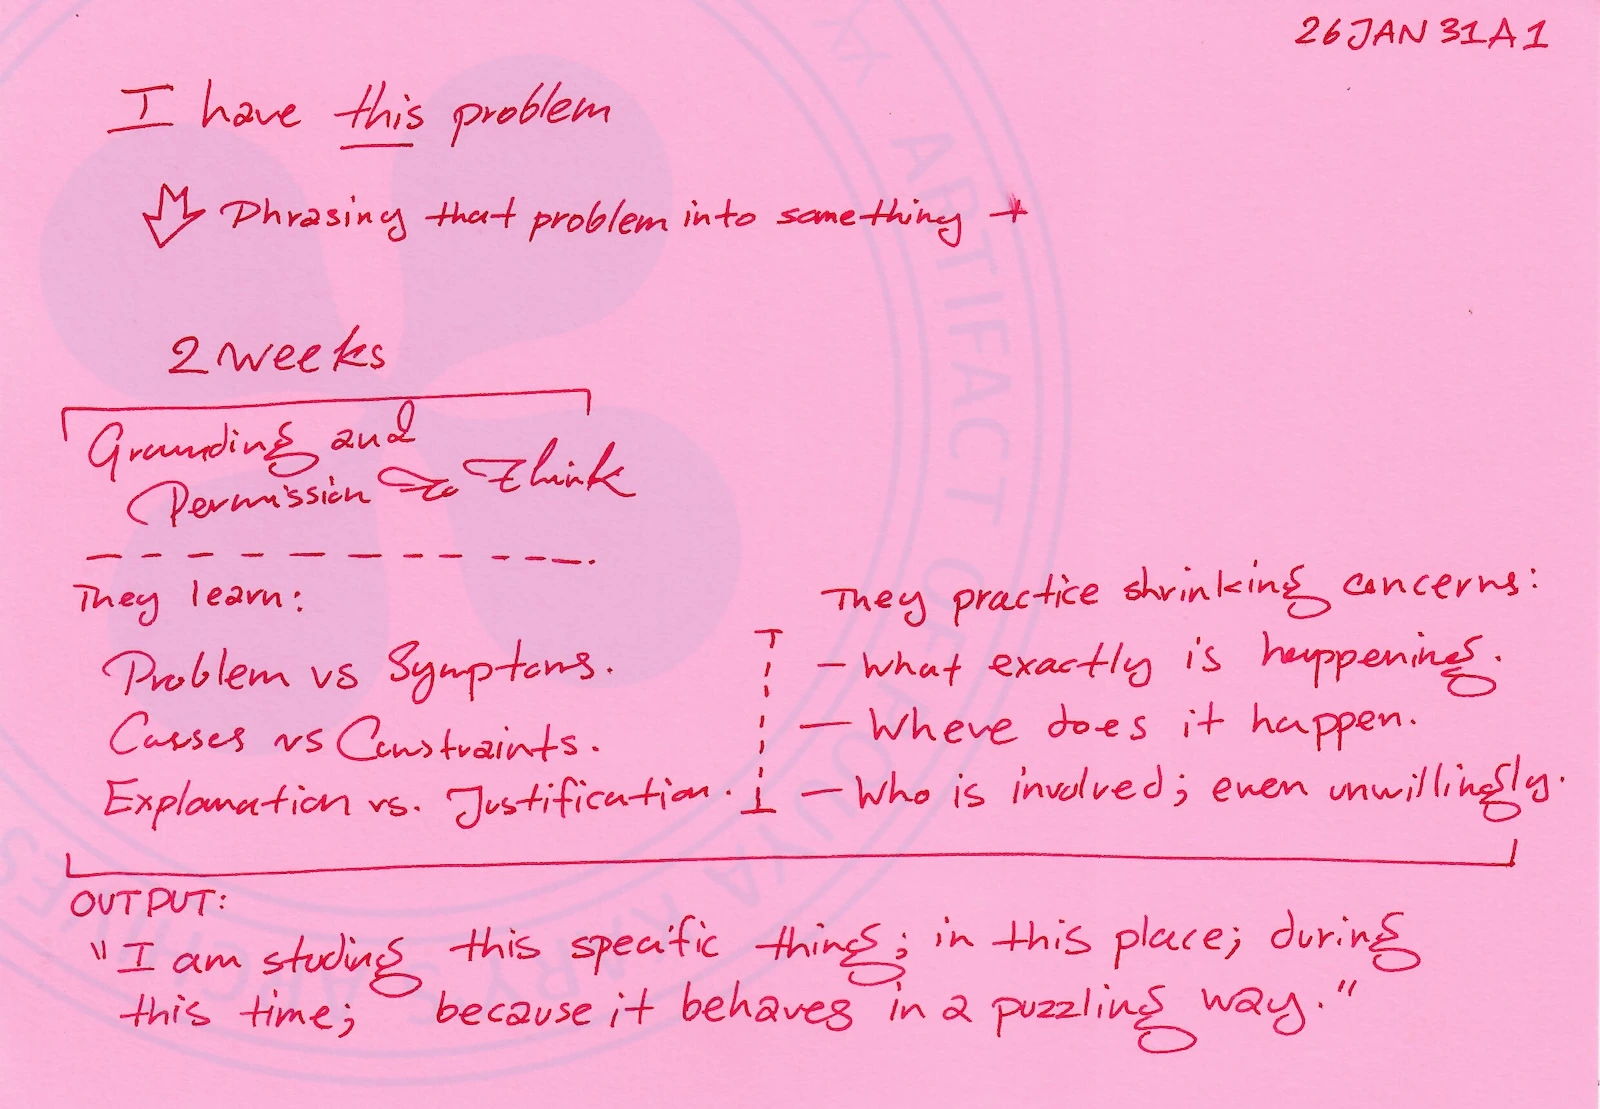 26JAN31A1
I have this problem
Phrasing that problem into something +
2 weeks
Grounding and
Permission to think
They learn:
Problem vs Symptoms.
Causes vs Constraints.
Explanation vs. Justification.
They practice shrinking concerns:
- What exactly is happening.
- Where does it happen.
- Who is involved; even unwillingly.
OUTPUT:
"I am studing this specific thing; in this place; during
this time; because it behaves in a puzzling way."
ARTIFACT OF
ARCHIVES